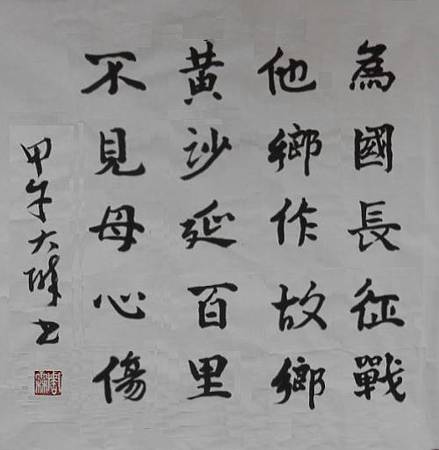 為國長征戰
他鄉作故鄉
黃沙延百里
不見母心傷
甲午大书